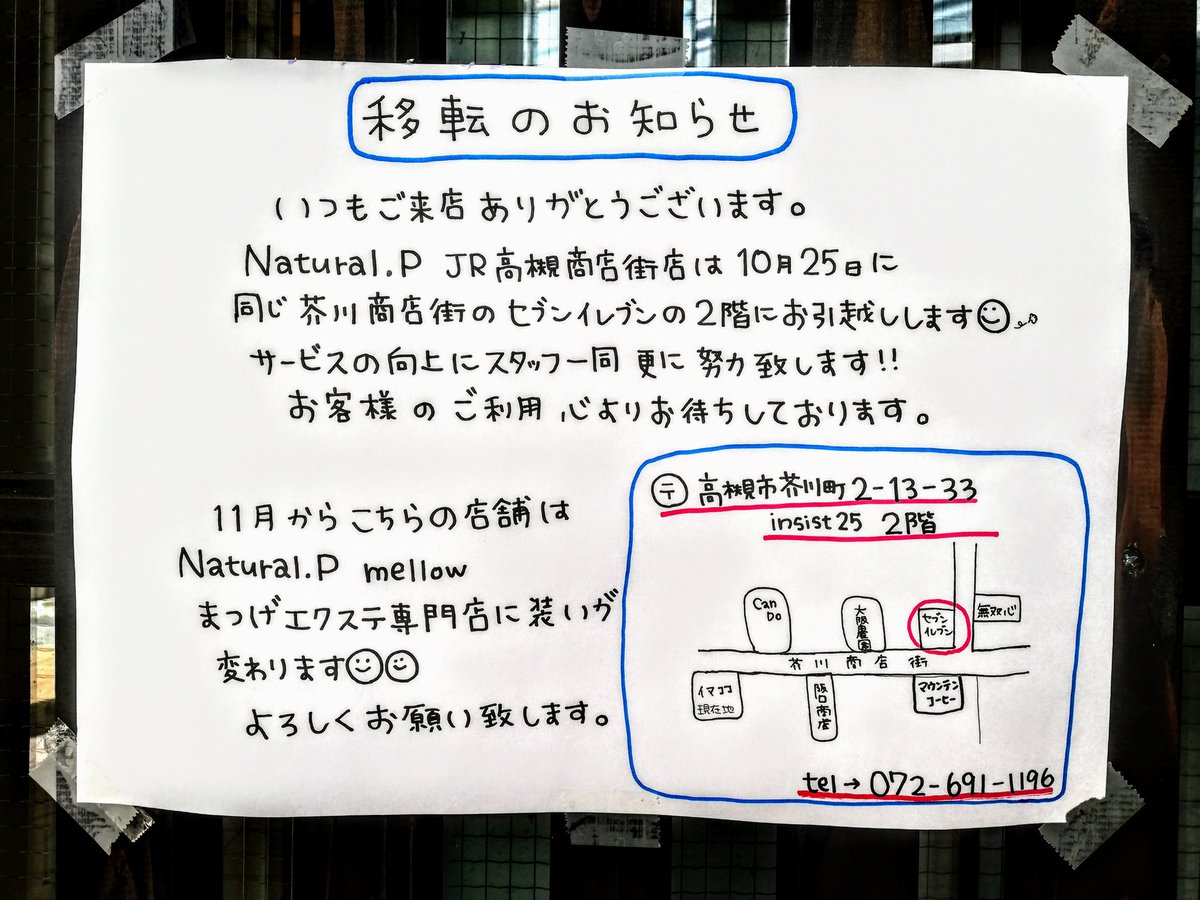 移転のお知らせ
いつもご来店ありがとうございます。
Natural.P JR高槻商店街店は10月25日に
同じ芥川商店街のセブンイレブンの2階にお引越しします
サービスの向上にスタッフ一同 更に努力致します!!
お客様のご利用 心よりお待ちしております。
11月からこちらの店舗は
Natural.P mellow
まつげエクステ専門店に装いが
変わります
よろしくお願い致します。
〒 高槻市芥川町2-13-33
insist25 2階
Can Do
大阪農園
セブン
イレブン
無双心
芥川商店街
イマココ
現在地
阪口商店
マウンテン
コーヒー
tel→072-691-1196